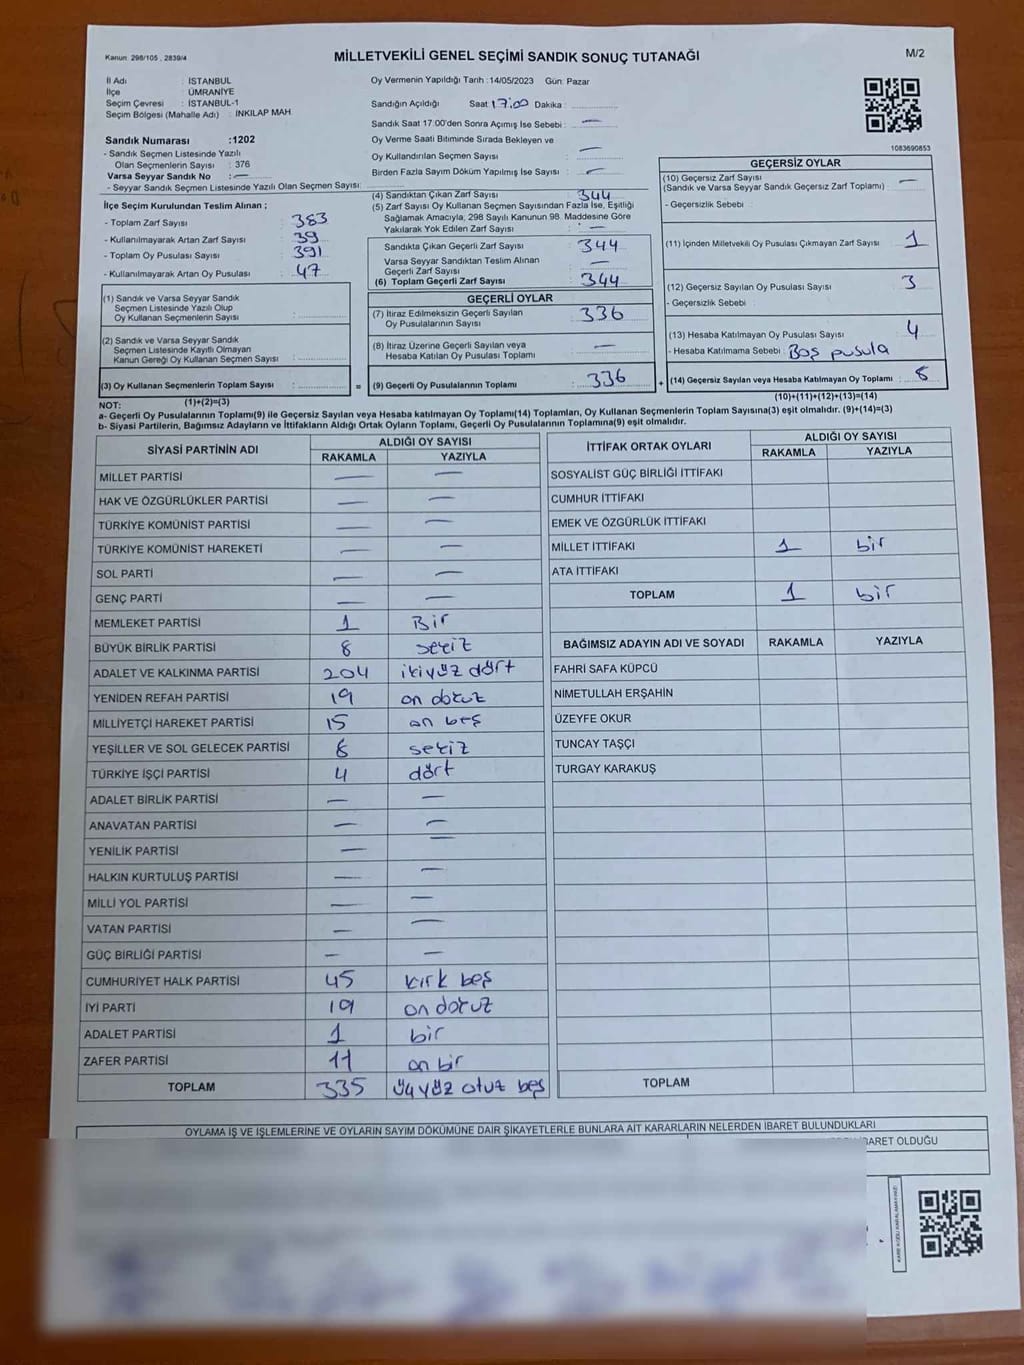 Kanun: 298/105, 2839/4
MİLLETVEKİLİ GENEL SEÇİMİ SANDIK SONUÇ TUTANAĞI
M/2
İl Adı : İSTANBUL
İlçe : ÜMRANİYE
Seçim Çevresi : İSTANBUL-1
Seçim Bölgesi (Mahalle Adı) : İNKILAP MAH.
Sandık Numarası :1202
- Sandık Seçmen Listesinde Yazılı
Olan Seçmenlerin Sayısı : 376
Varsa Seyyar Sandık No : —
- Seyyar Sandık Seçmen Listesinde Yazılı Olan Seçmen Sayısı:
İlçe Seçim Kurulundan Teslim Alınan ;
- Toplam Zarf Sayısı : 383
- Kullanılmayarak Artan Zarf Sayısı : 39
- Toplam Oy Pusulası Sayısı : 391
- Kullanılmayarak Artan Oy Pusulası : 47
(1) Sandık ve Varsa Seyyar Sandık
Seçmen Listesinde Yazılı Olup
Oy Kullanan Seçmenlerin Sayısı :
(2) Sandık ve Varsa Seyyar Sandık
Seçmen Listesinde Kayıtlı Olmayan
Kanun Gereği Oy Kullanan Seçmen Sayısı :
(3) Oy Kullanan Seçmenlerin Toplam Sayısı :
(1)+(2)=(3)
Oy Vermenin Yapıldığı Tarih :14/05/2023 Gün: Pazar
Sandığın Açıldığı Saat 17:00 Dakika :
Sandık Saat 17:00'den Sonra Açımış İse Sebebi : —
Oy Verme Saati Bitiminde Sırada Bekleyen ve
Oy Kullandırılan Seçmen Sayısı : —
Birden Fazla Sayım Döküm Yapılmış İse Sayısı : —
(4) Sandıktan Çıkan Zarf Sayısı : 344
(5) Zarf Sayısı Oy Kullanan Seçmen Sayısından Fazla İse, Eşitliği
Sağlamak Amacıyla, 298 Sayılı Kanunun 98. Maddesine Göre
Yakılarak Yok Edilen Zarf Sayısı : —
Sandıkta Çıkan Geçerli Zarf Sayısı : 344
Varsa Seyyar Sandıktan Teslim Alınan
Geçerli Zarf Sayısı : —
(6) Toplam Geçerli Zarf Sayısı : 344
GEÇERLİ OYLAR
(7) İtiraz Edilmeksizin Geçerli Sayılan
Oy Pusulalarının Sayısı : 336
(8) İtiraz Üzerine Geçerli Sayılan veya
Hesaba Katılan Oy Pusulası Toplamı : —
= (9) Geçerli Oy Pusulalarının Toplamı : 336 +
1083690853
GEÇERSİZ OYLAR
(10) Geçersiz Zarf Sayısı
(Sandık ve Varsa Seyyar Sandık Geçersiz Zarf Toplamı) : —
- Geçersizlik Sebebi :
(11) İçinden Milletvekili Oy Pusulası Çıkmayan Zarf Sayısı : 1
(12) Geçersiz Sayılan Oy Pusulası Sayısı : 3
- Geçersizlik Sebebi :
(13) Hesaba Katılmayan Oy Pusulası Sayısı : 4
- Hesaba Katılmama Sebebi : Boş pusula
(14) Geçersiz Sayılan veya Hesaba Katılmayan Oy Toplamı : 8
(10)+(11)+(12)+(13)=(14)
NOT:
a- Geçerli Oy Pusulalarının Toplamı(9) ile Geçersiz Sayılan veya Hesaba katılmayan Oy Toplamı(14) Toplamları, Oy Kullanan Seçmenlerin Toplam Sayısına(3) eşit olmalıdır. (9)+(14)=(3)
b- Siyasi Partilerin, Bağımsız Adayların ve İttifakların Aldığı Ortak Oyların Toplamı, Geçerli Oy Pusulalarının Toplamına(9) eşit olmalıdır.
SİYASİ PARTİNİN ADI ALDIĞI OY SAYISI
RAKAMLA YAZIYLA
MİLLET PARTİSİ — —
HAK VE ÖZGÜRLÜKLER PARTİSİ — —
TÜRKİYE KOMÜNİST PARTİSİ — —
TÜRKİYE KOMÜNİST HAREKETİ — —
SOL PARTİ — —
GENÇ PARTİ — —
MEMLEKET PARTİSİ 1 Bir
BÜYÜK BİRLİK PARTİSİ 8 sekiz
ADALET VE KALKINMA PARTİSİ 204 ikiyüz dört
YENİDEN REFAH PARTİSİ 19 on dokuz
MİLLİYETÇİ HAREKET PARTİSİ 15 on beş
YEŞİLLER VE SOL GELECEK PARTİSİ 8 sekiz
TÜRKİYE İŞÇİ PARTİSİ 4 dört
ADALET BİRLİK PARTİSİ — —
ANAVATAN PARTİSİ — —
YENİLİK PARTİSİ — —
HALKIN KURTULUŞ PARTİSİ — —
MİLLİ YOL PARTİSİ — —
VATAN PARTİSİ — —
GÜÇ BİRLİĞİ PARTİSİ — —
CUMHURİYET HALK PARTİSİ 45 kırk beş
İYİ PARTİ 19 on dokuz
ADALET PARTİSİ 1 bir
ZAFER PARTİSİ 11 on bir
TOPLAM 335 üçyüz otuz beş
İTTİFAK ORTAK OYLARI ALDIĞI OY SAYISI
RAKAMLA YAZIYLA
SOSYALİST GÜÇ BİRLİĞİ İTTİFAKI
CUMHUR İTTİFAKI
EMEK VE ÖZGÜRLÜK İTTİFAKI
MİLLET İTTİFAKI 1 bir
ATA İTTİFAKI
TOPLAM 1 bir
BAĞIMSIZ ADAYIN ADI VE SOYADI RAKAMLA YAZIYLA
FAHRİ SAFA KÜPCÜ
NİMETULLAH ERŞAHİN
ÜZEYFE OKUR
TUNCAY TAŞÇI
TURGAY KARAKUŞ
TOPLAM
OYLAMA İŞ VE İŞLEMLERİNE VE OYLARIN SAYIM DÖKÜMÜNE DAİR ŞİKAYETLERLE BUNLARA AİT KARARLARIN NELERDEN İBARET BULUNDUKLARI
BARET OLDUĞU